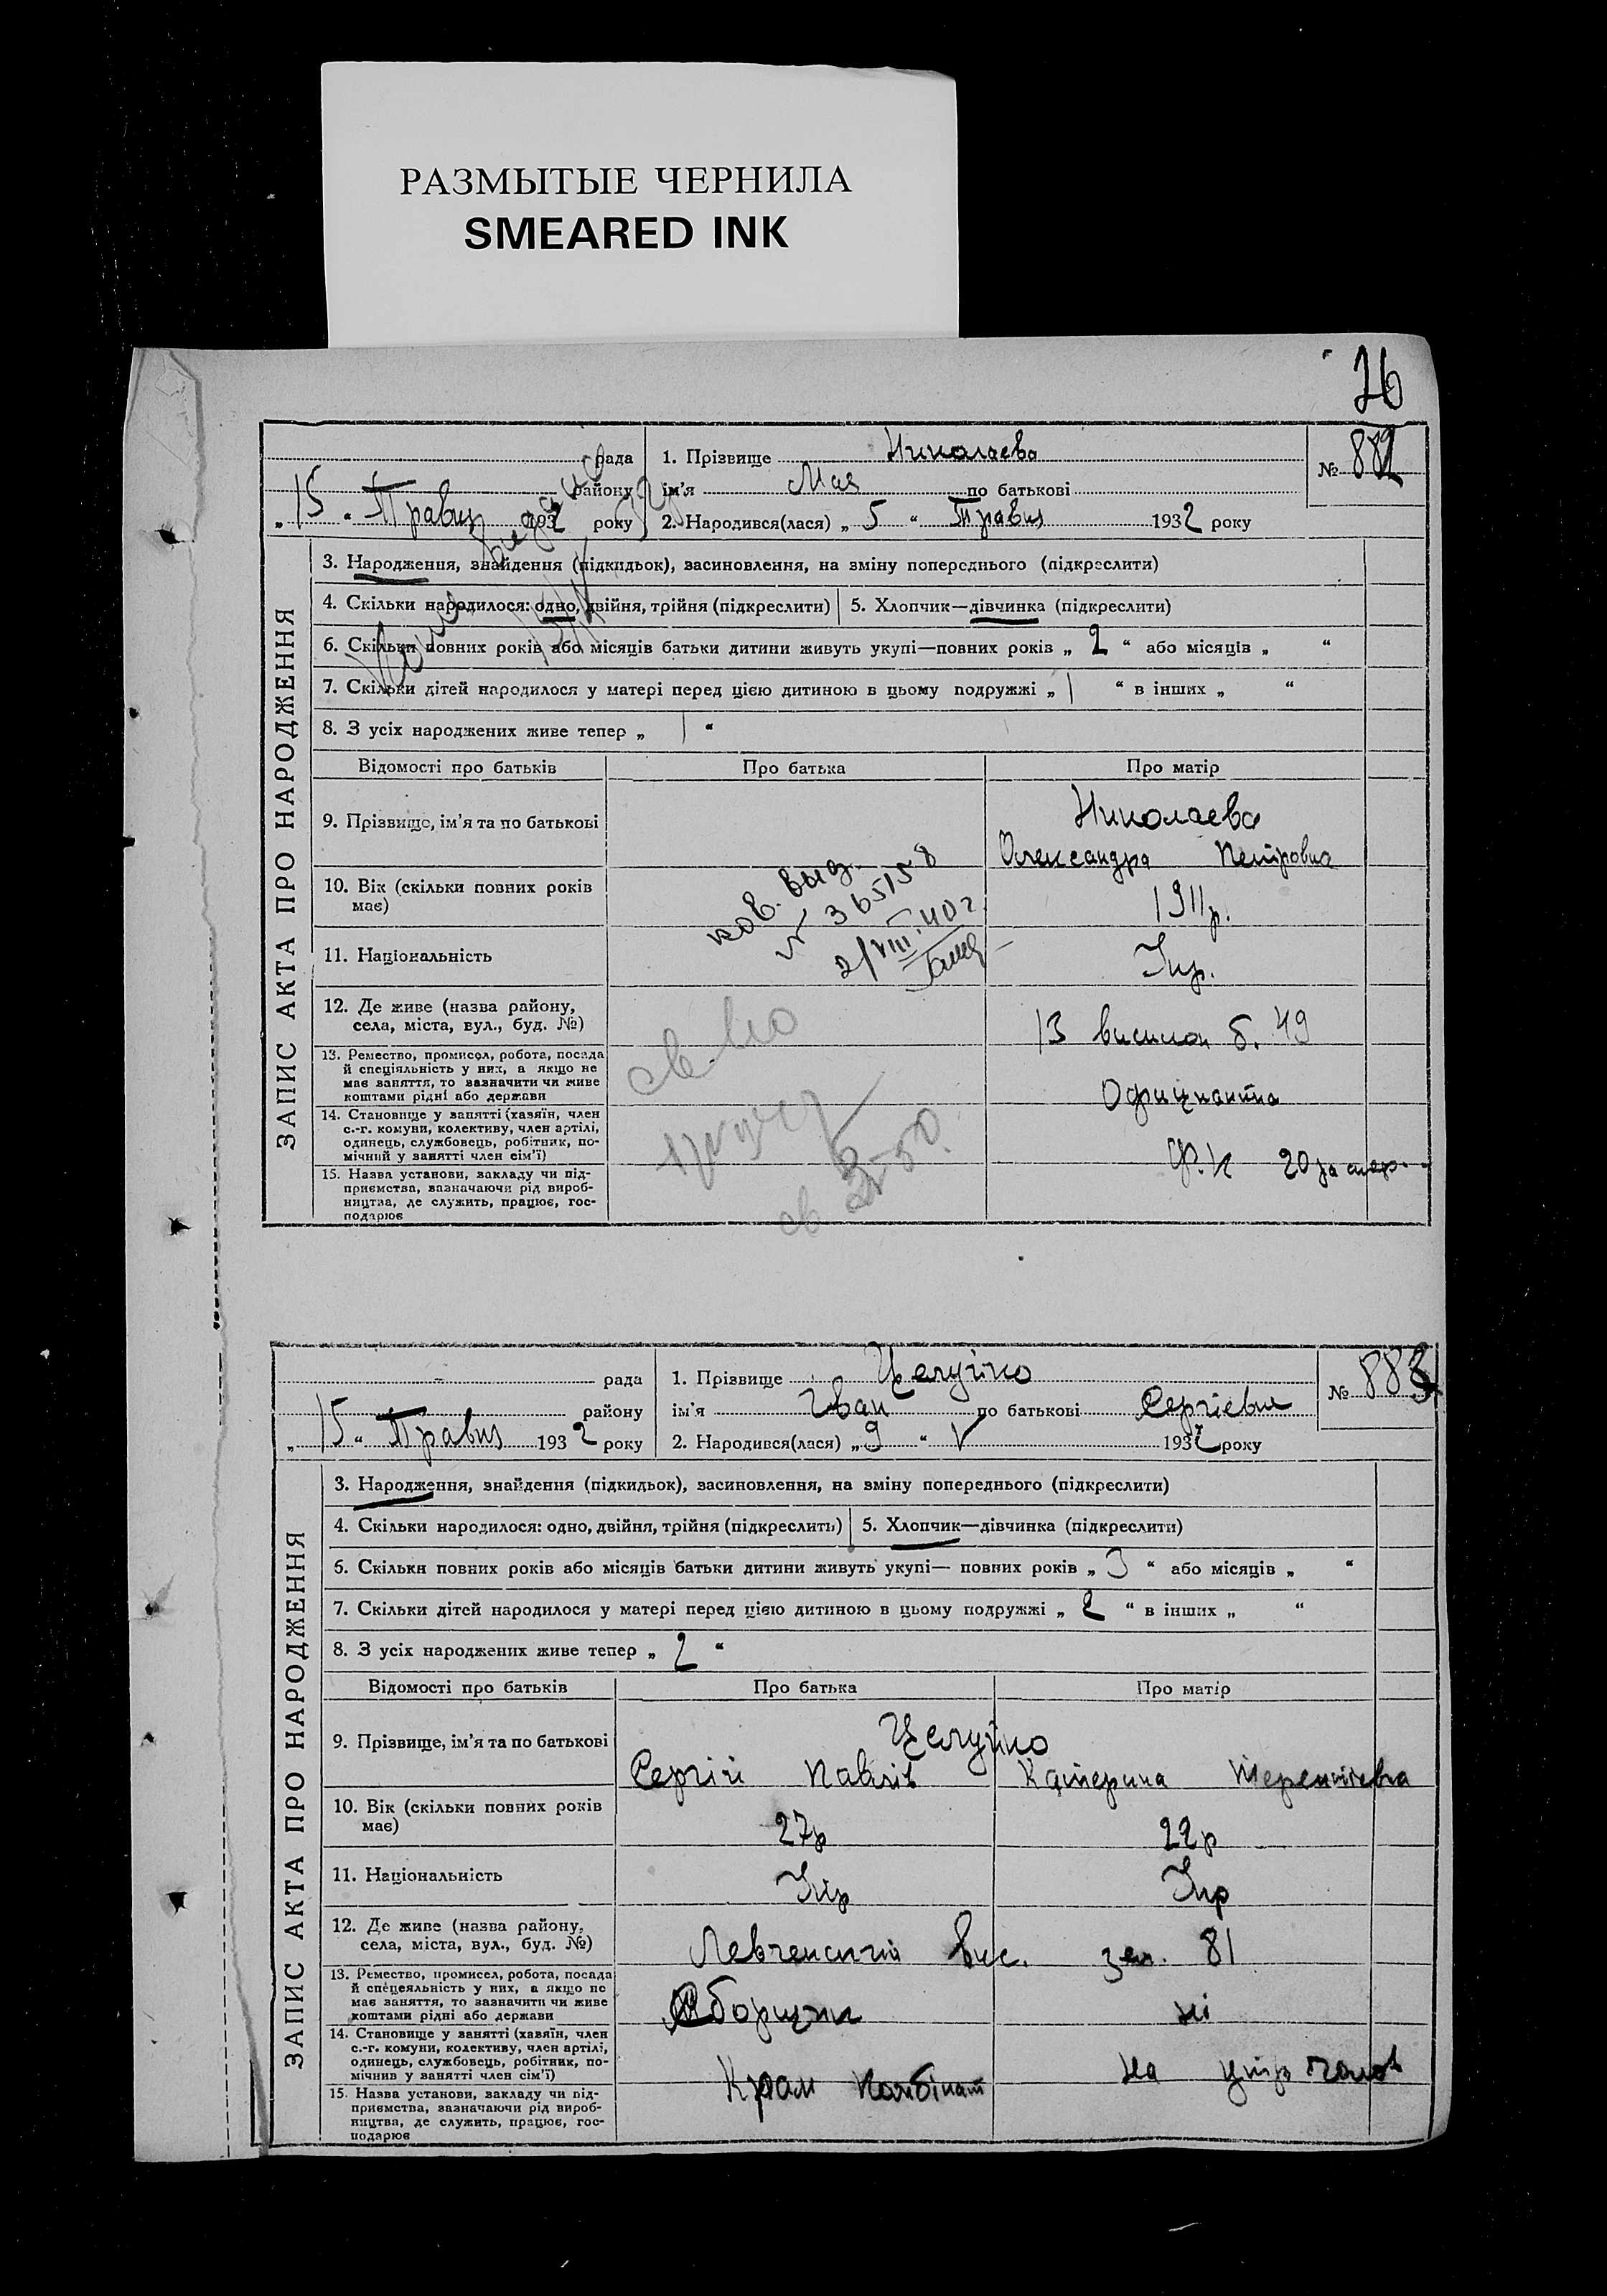 РАЗМЫТЫЕ ЧЕРНИЛА
SMEARED INK
26
рада
1. Прізвище Николаева
№ 882
району
ім'я Мая по батькові
„15“ Травня 1932 року
2. Народився(лася) „5“ Травня 1932 року
ЗАПИС АКТА ПРО НАРОДЖЕННЯ
3. Народження, знайдення (підкидьок), засиновлення, на зміну попереднього (підкреслити)
4. Скільки народилося: одно, двійня, трійня (підкреслити)
5. Хлопчик—дівчинка (підкреслити)
6. Скільки повних років або місяців батьки дитини живуть укупі—повних років „2“ або місяців „ “
7. Скільки дітей народилося у матері перед цією дитиною в цьому подружжі „1“ в інших „ “
8. З усіх народжених живе тепер „1“
Відомості про батьків
Про батька
Про матір
9. Прізвище, ім'я та по батькові
Николаева
Олександра Петровна
10. Вік (скільки повних років
має)
1911р.
11. Національність
Укр.
пов. выд.
№ 365158
2/VIII.40г.
12. Де живе (назва району,
села, міста, вул., буд. №)
13 висилок б. 49
13. Ремество, промисел, робота, посада
й спеціяльність у них, а якщо не
має заняття, то зазначити чи живе
коштами рідні або держави
Официантка
14. Становище у занятті (хазяїн, член
с.-г. комуни, колективу, член артілі,
одинець, службовець, робітник, по-
мічний у занятті член сім'ї)
15. Назва установи, закладу чи під-
приємства, зазначаючи рід вироб-
ництва, де служить, працює, гос-
подарює
Ф.К 20
рада
1. Прізвище Целуйко
№ 883
району
ім'я Іван по батькові Сергієвич
„15“ Травня 1932 року
2. Народився(лася) „9“ V 1932 року
ЗАПИС АКТА ПРО НАРОДЖЕННЯ
3. Народження, знайдення (підкидьок), засиновлення, на зміну попереднього (підкреслити)
4. Скільки народилося: одно, двійня, трійня (підкреслить)
5. Хлопчик—дівчинка (підкреслити)
6. Скільки повних років або місяців батьки дитини живуть укупі— повних років „3“ або місяців „ “
7. Скільки дітей народилося у матері перед цією дитиною в цьому подружжі „2“ в інших „ “
8. З усіх народжених живе тепер „2“
Відомості про батьків
Про батька
Про матір
9. Прізвище, ім'я та по батькові
Целуйко
Сергій Павлів
Катерина Терентієвна
10. Вік (скільки повних років
має)
27р
22р
11. Національність
Укр
Укр
12. Де живе (назва району,
села, міста, вул., буд. №)
Левченський вис. зем. 81
13. Ремество, промисел, робота, посада
й спецеяльність у них, а якщо не
має заняття, то зазначити чи живе
коштами рідні або держави
ні
14. Становище у занятті (хазяїн, член
с.-г. комуни, колективу, член артілі,
одинець, службовець, робітник, по-
мічнив у занятті член сім'ї)
на утр чолов
15. Назва установи, закладу чи під-
приємства, зазначаючи рід вироб-
ництва, де служить, працює, гос-
подарює
Крам Комбінат